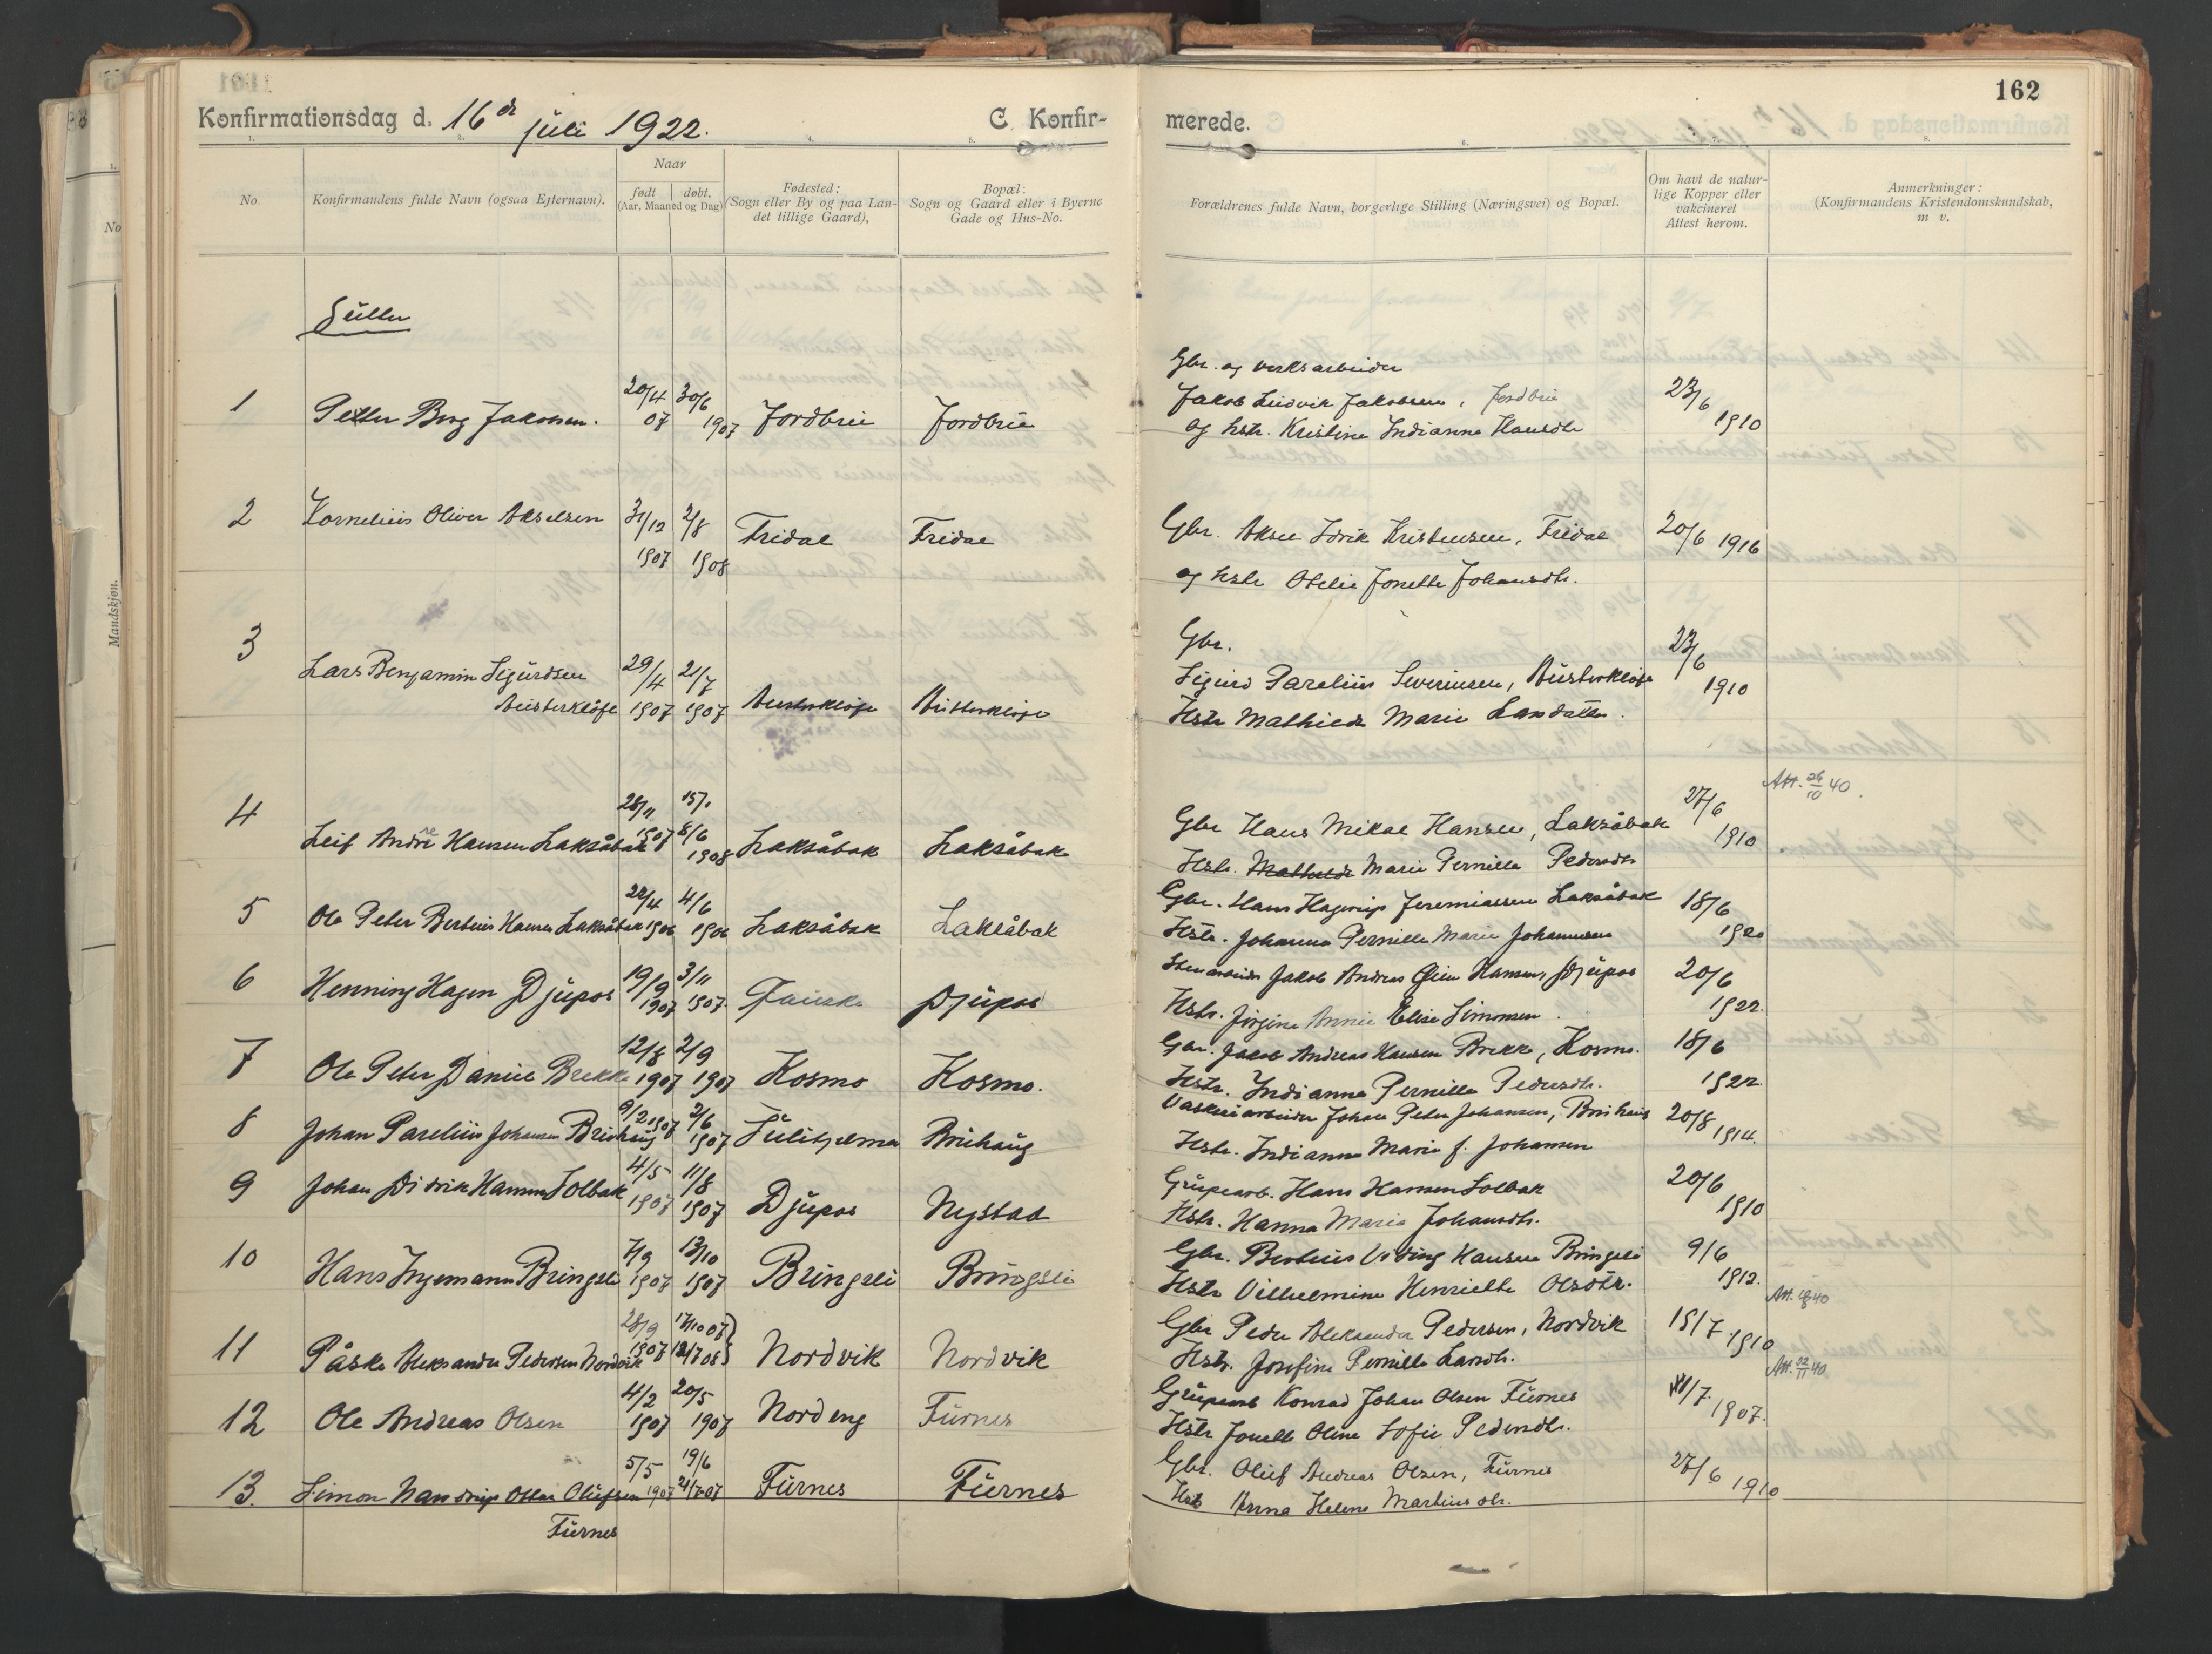 162
Konfirmationsdag d. 16de juli 1922. C. Konfir-
merede.
1. 4. 5. 6. 8.
No
Konfirmandens fulde Navn (ogsaa Efternavn).
Naar
født døbt,
(Aar, Maaned og Dag)
Fødested:
(Sogn eller By og paa Lan-
det tillige Gaard),
Bopæl:
Sogn og Gaard eller i Byerne
Gade og Hus-No.
Forældrenes fulde Navn, borgerlige Stilling (Næringsvei) og Bopæl.
Om havt de natur-
lige Kopper eller
vakcineret
Attest herom.
Anmerkninger:
(Konfirmandens Kristendomskundskab,
m v.
Gutter
Gbr. og verksarbeider
1 Petter Berg Jakobsen. 20/4 07 30/6 1907 Jordbru Jordbru Jakob Ludvik Jakobsen, Jordbru 23/6 1910
og hstr. Kristine Indianna Hansdtr
2 Kornelius Oliver Akselsen 31/12 1907 2/8 1908 Fridal Fridal Gbr. Aksel Idrik Kristensen, Fridal 20/6 1916
og hstr Otelie Jonette Johansdtr.
3 Gbr.
Lars Benjamin Sigurdsen 29/4 1907 21/7 1907 Sigurd Parelius Severinsen, Austerkløft 23/6 1910
Austerkløft Austerkløft Austerkløft Hstr Mathilde Marie Larsdatter.
Att. 26/10 40.
4 Leif Andre Hansen Laksåbak 28/11 1907 15/1 8/6 1908 Laksåbak Laksåbak Gbr Hans Mikal Hansen, Laksåbak 27/6 1910
Hstr. Mathilde Marie Pernille Pedersdtr
5 Ole Peter Bertius Hansen Laksåbak 22/4 1906 4/6 1906 Laksåbak Laksåbak Gbr. Hans Hagerup Jeremiassen Laksåbak 18/6 1920
Hstr. Johanna Pernille Marie Johannesen
6 Henning Hagen Djupos 19/9 1907 3/11 1907 Fauske Djupos Jakob Andreas Øien Hansen, Djupos 20/6 1922.
Hstr. Jørgine Annie Elise Simonsen.
7 Ole Peter Daniel Brekke 12/8 1907 2/9 1907 Kosmo Kosmo. Gbr. Jakob Andreas Hansen Brekke, Kosmo. 18/6 1922
Hstr. Indianna Pernille Pedersdtr.
8 Johan Parelius Johansen Bruhaug 9/2 1907 2/6 1907 Sulitjelma Bruhaug Vaskeriarbeider Johan Peter Johansen, Bruhaug 20/8 1914.
Hstr. Indianna Marie f. Johansen
9 Johan Didrik Hansen Solbak 4/5 1907 11/8 1907 Djupos Nystad Grubearb. Hans Hansen Solbak 20/6 1910
Hstr. Hanna Maria Johansdtr.
10 Hans Ingemann Bringsli 7/9 1907 13/10 1907 Bringsli Bringsli Gbr. Bertius Hansen Bringsli 9/6 1912.
Hstr Vilhelmine Henriette Olsdtr.
11 Påske Aleksander Pedersen Nordvik 28/9 1907 Nordvik Nordvik Gbr Peder Aleksander Pedersen, Nordvik 15/7 1910
Hstr. Josefine Pernille Larsdtr.
Att. 22/11 40
12 Ole Andreas Olsen 4/2 1907 20/5 1907 Nordeng Furnes Grubearb Konrad Johan Olsen Furnes 1907.
Hstr Jonette Oline Sofie Pedersdtr.
13. Simon Nandrup Ottar Olufsen 5/5 1907 19/6 21/7 07 Furnes Furnes Gbr. Oluf Andreas Olsen, Furnes 27/6 1910
Furnes Hstr Anna Helene Martinusdtr.
Mandskjøn.
No